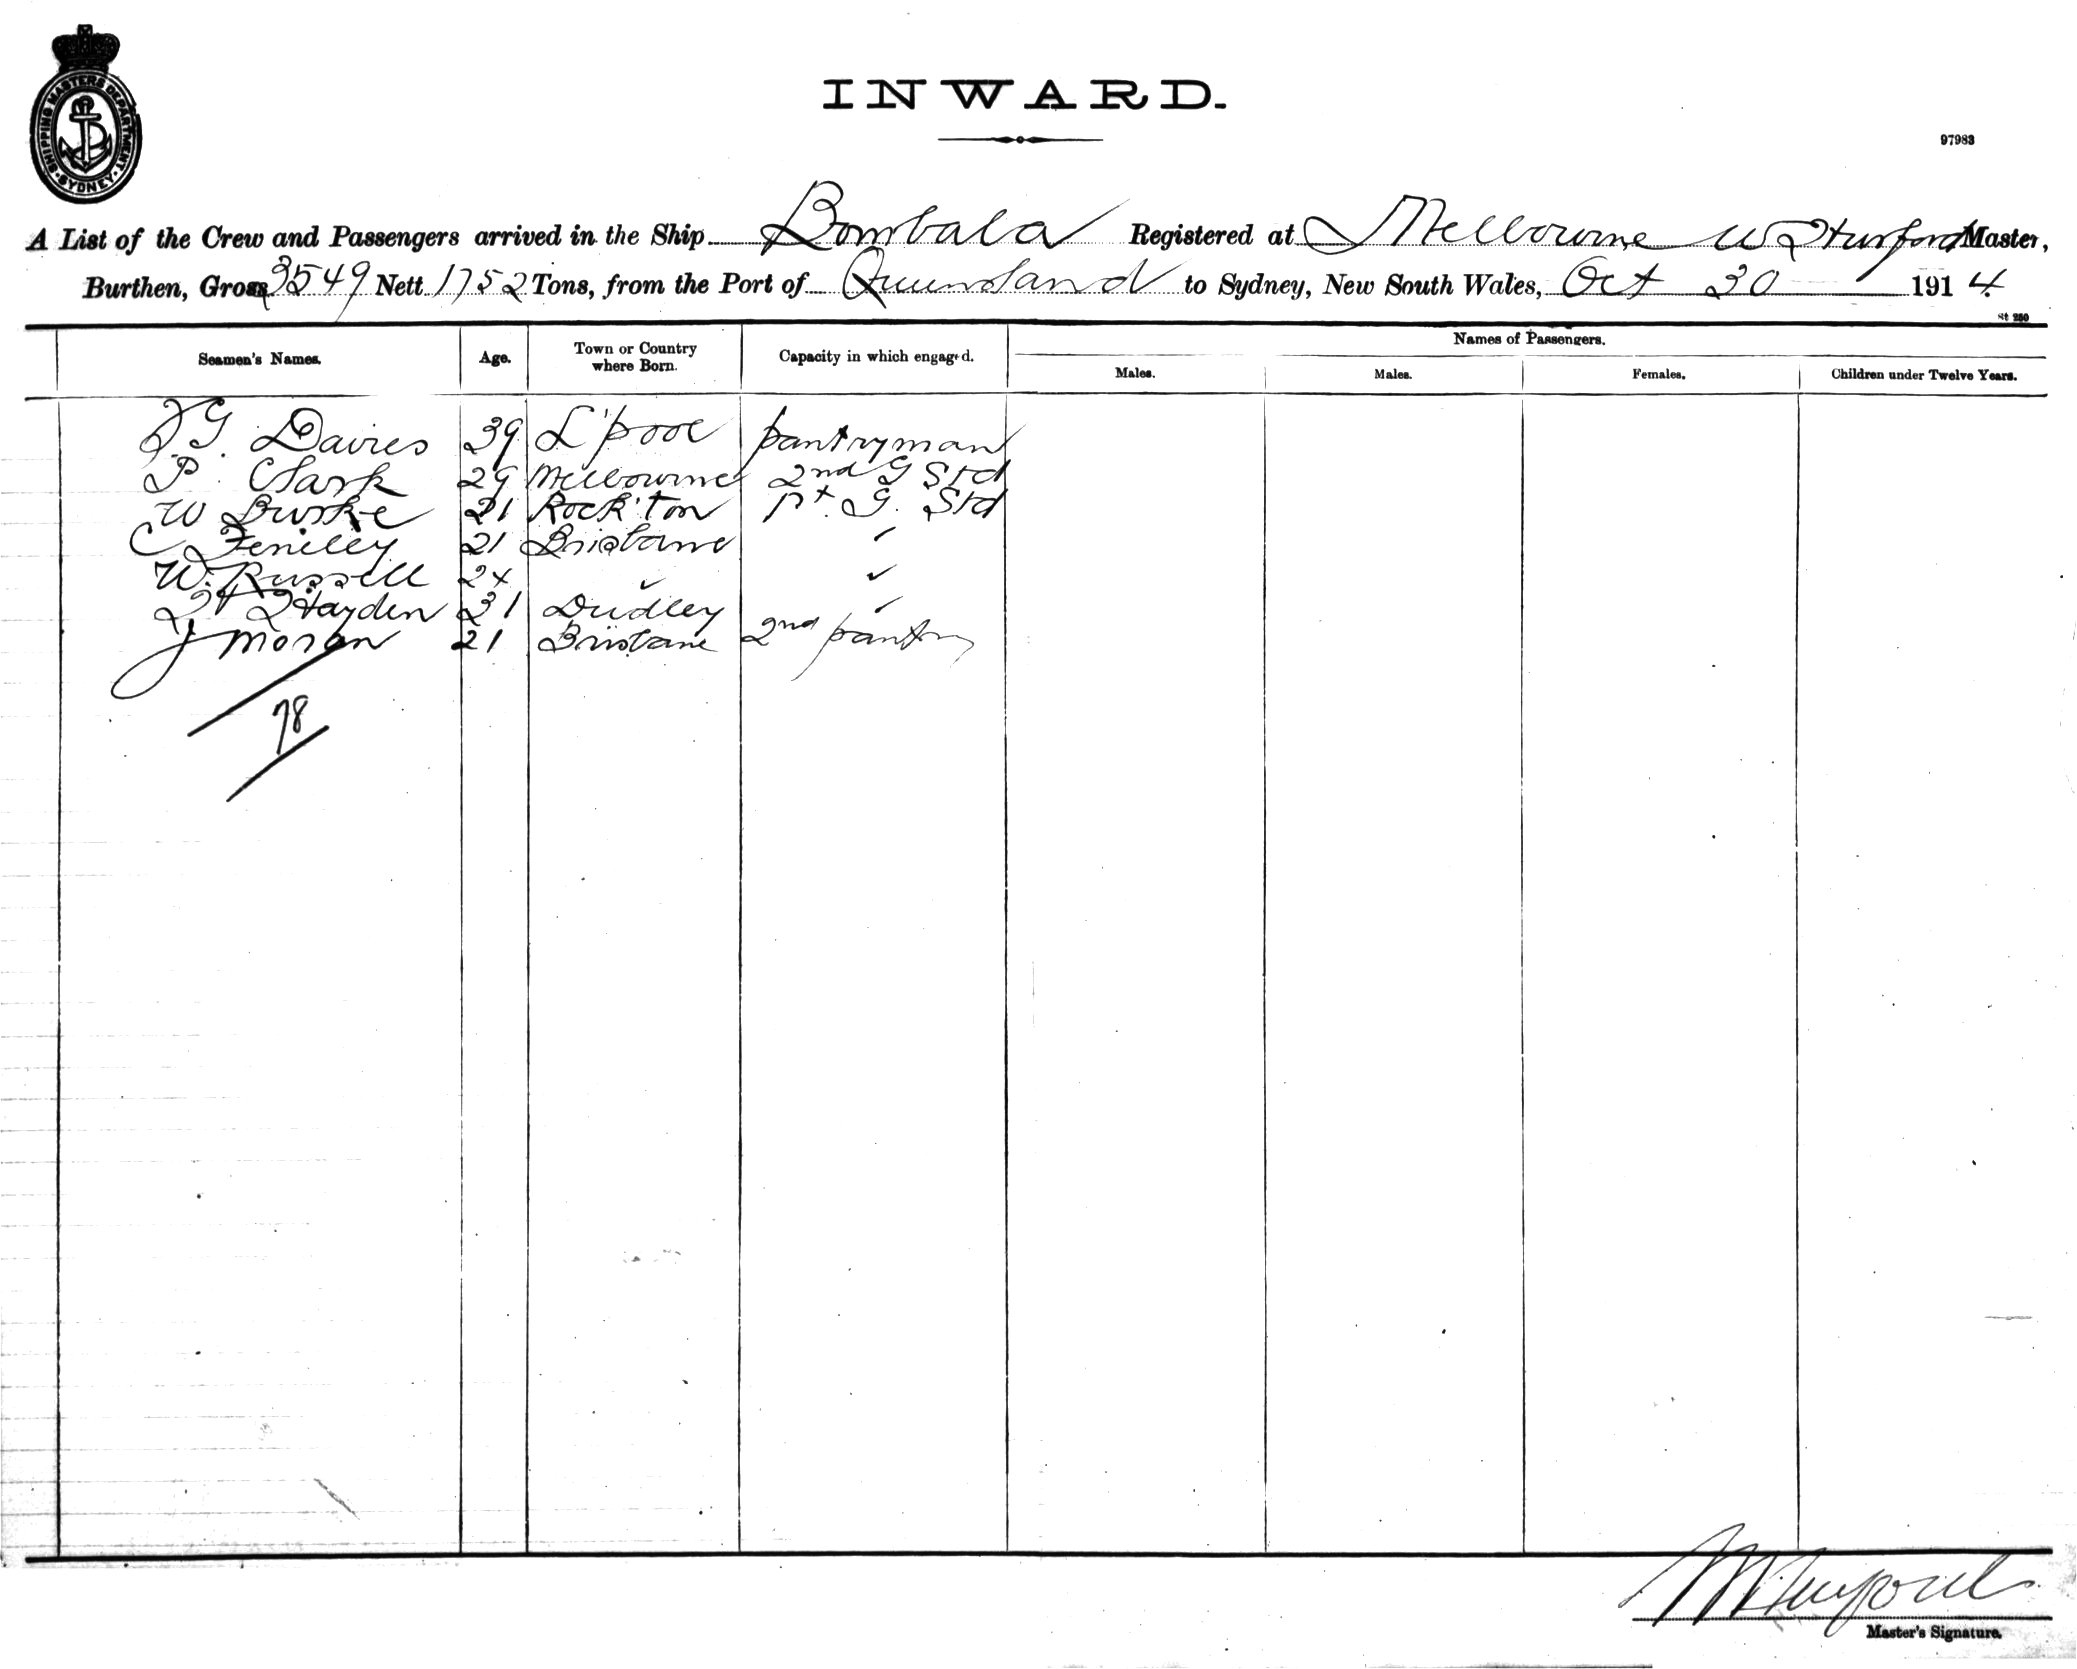 SHIPPING MASTERS DEPARTMENT SYDNEY
INWARD.
97983
A List of the Crew and Passengers arrived in the Ship Bombala Registered at Melbourne W Hurford Master,
Burthen, Gross 3549 Nett 1752 Tons, from the Port of Queensland to Sydney, New South Wales, Oct 30 1914
St 250
Seamen's Names. Age. Town or Country where Born. Capacity in which engaged. Names of Passengers.
Males. Males. Females. Children under Twelve Years.
G. Davies 39 L'pool pantryman
P. Clark 29 Melbourne 2nd G Std
W Burke 21 Rock'ton Pt. G. Std
C Feneley 21 Brisbane "
W. Russell 24 " "
Hayden 31 Dudley "
J Moran 21 Brisbane 2nd pantry
78
Hurford
Master's Signature.